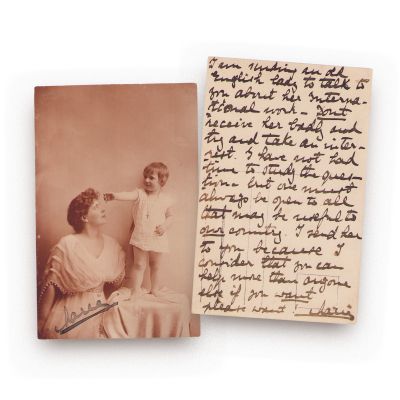 Marie
I am sending an old
English lady to talk to
you about her Interna-
tional work – Don't
receive her badly and
try and take an inter-
rest. I have not had
time to study the ques-
tion – but one must
always be open to all
that may be useful to
our country. I send her
to you because I
consider that you can
help more than anyone
else if you want –
please want! Marie